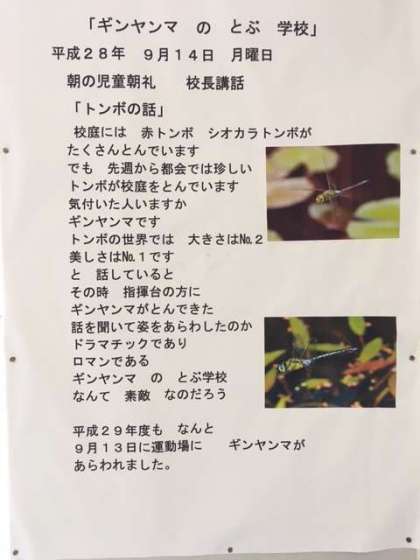 「ギンヤンマ　の　とぶ　学校」
平成２８年　９月１４日　月曜日
朝の児童朝礼　　校長講話
「トンボの話」
校庭には　赤トンボ　シオカラトンボが
たくさんとんでいます
でも　先週から都会では珍しい
トンボが校庭をとんでいます
気付いた人いますか
ギンヤンマです
トンボの世界では　大きさは№２
美しさは№１です
と　話していると
その時　指揮台の方に
ギンヤンマがとんできた
話を聞いて姿をあらわしたのか
ドラマチックであり
ロマンである
ギンヤンマ　の　とぶ学校
なんて　素敵　なのだろう
平成２９年度も　なんと
９月１３日に運動場に　　ギンヤンマが
あらわれました。